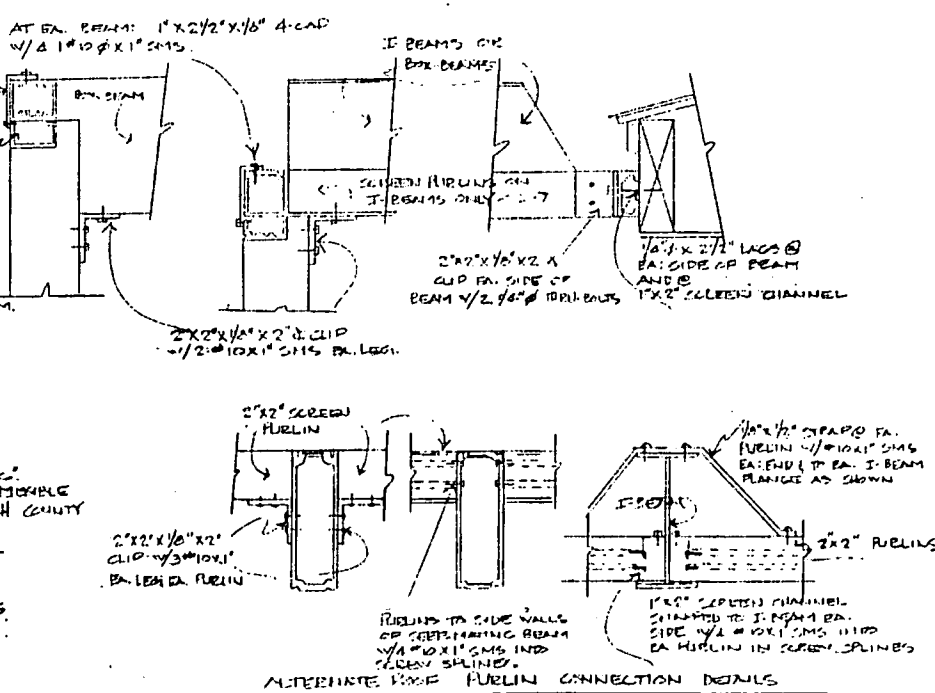 AT EA. BEAM: 1" X 2 1/2" X 1/8" CLIP
W/ 4 #10 X 1" SMS.
BOX BEAM
I-BEAMS OR
BOX-BEAMS
SCREEN PURLINS ON
I-BEAMS ONLY
2"X2"X1/8"X2
CLIP EA. SIDE OF
BEAM W/2 1/4"ø THRU-BOLTS
1/4"ø X 2 1/2" LAGS @
EA. SIDE OF BEAM
AND @
1"X2" SCREEN CHANNEL
2"X2"X1/8"X2" CLIP
W/2 #10X1" SMS EA. LEG.
2"X2" SCREEN
PURLIN
H COUNTY
2"X2"X1/8"X2"
CLIP W/3 #10X1"
EA. LEG EA. PURLIN
PURLINS TO SIDE WALLS
OF SELF-MATING BEAM
W/4 #10X1" SMS INTO
SCREW SPLINES.
1/8"X1/2" STRAP @ EA.
PURLIN W/#10X1" SMS
EA. END & TO EA. I-BEAM
FLANGE AS SHOWN
I-BEAM
2"X2" PURLINS
1"X2" SCREEN CHANNEL
TO I-BEAM EA.
SIDE W/4 #10X1" SMS INTO
EA PURLIN IN SCREW SPLINES
ALTERNATE ROOF PURLIN CONNECTION DETAILS